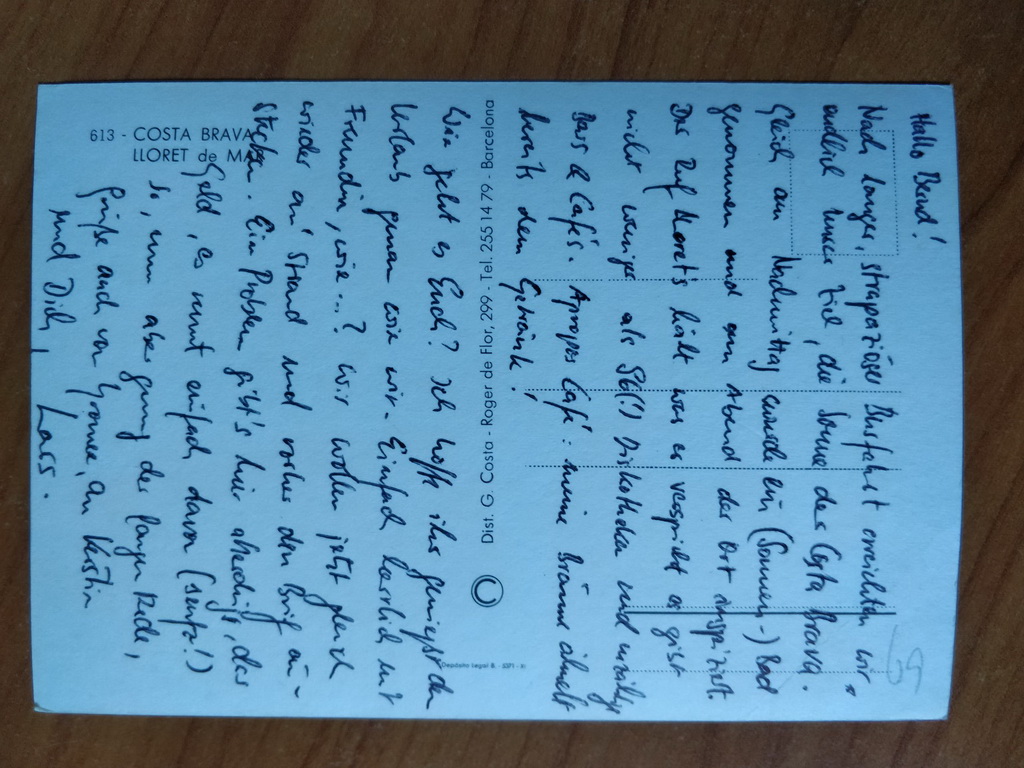 Hallo Bernd!
Nach langer, strapaziöser Busfahrt erreichten wir
endlich unser Ziel, die Sonne der Costa Brava.
Gleich am Nachmittag wurde ein (Sonnen-) Bad
genommen und am Abend der Ort inspiziert.
Der Ruf Lloret's hält was er verspricht es gibt
nicht weniger als 36(!) Diskotheken und unzählige
Bars & Cafés. Apropos Café: meine Bräune ähnelt
bereits dem Getränk!
Dist. G. Costa - Roger de Flor, 299 - Tel. 255 14 79 - Barcelona
Depósito Legal B.
Wie geht es Euch? Ich hoffe ihr genießt den
Urlaub genau wie wir. Einfach herrlich mit
Freundin, wie...? Wir wollen jetzt gleich
wieder an' Strand und vorher den Brief ein-
stecken. Ein Problem gibt's hier allerdings, das
Geld, es rennt einfach davon (seufz!)
So, nun aber genug der langen Rede,
Grüße auch von Yvonne, an Kerstin
und Dich,
Lars.
613 - COSTA BRAVA
LLORET de MAR